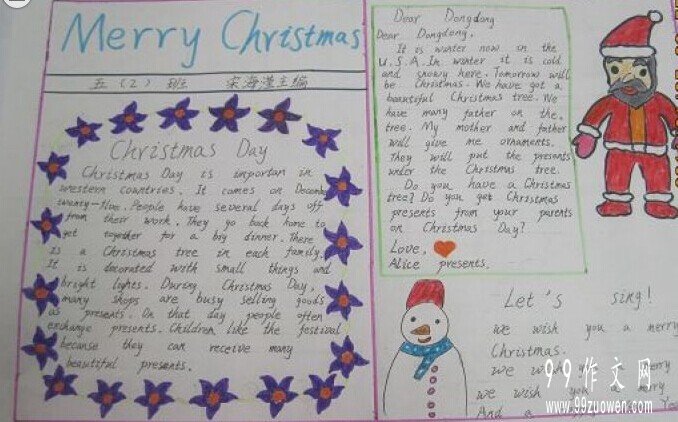 Merry Christmas
五（2）班 宋海潼主编
Christmas Day
Christmas Day is importan in
western countries. It comes on Decembe
twenty-five. People have several days off
from their work. They go back home to
get together for a big dinner. There
is a Christmas tree in each family.
It is decorated with small things and
bright lights. During Christmas Day,
many shops are busy selling goods
as presents. On that day people often
exchange presents. Children like the festival
because they can receive many
beautiful presents.
Dear Dongdong
Dear Dongdong,
It is wanter now in the
U.S.A. In winter it is cold
and snowy here. Tomorrow will
be Christmas. We have got a
beautiful Christmas tree. We
have many father on the.
tree. My mother and father
will give me ornaments.
They will put the presents
under the Christmas tree.
Do you have a Christmas
tree? Do you get Christmas
presents from your parents
on Christmas Day?
Love,
Alice presents.
Let's sing!
we wish you a merry
Christmas.
we wish you a merry
we wish you a merry
And a
99作文网
www.99zuowen.com